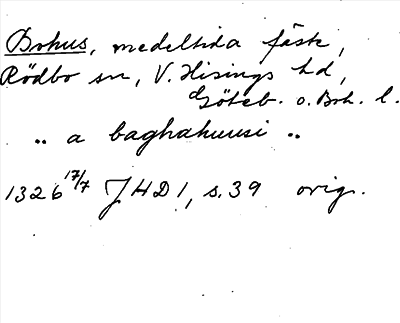 Bohus, medeltida fäste,
Rödbo sn, V. Hisings hd,
Göteb. o. Boh. l.
.. a baghahuusi ..
1326 17/7 JHD 1, s. 39 orig.